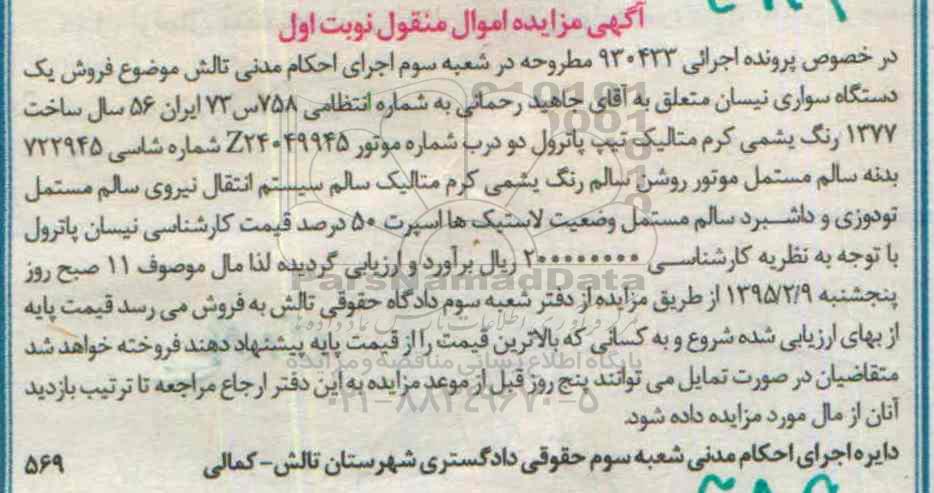 آگهی مزایده اموال منقول نوبت اول
در خصوص پرونده اجرائی ۹۳۰۴۳۳ مطروحه در شعبه سوم اجرای احکام مدنی تالش موضوع فروش یک
دستگاه سواری نیسان متعلق به آقای جاهید رحمانی به شماره انتظامی ۷۵۸س۷۳ ایران ۵۶ سال ساخت
۱۳۷۷ رنگ یشمی کرم متالیک تیپ پاترول دو درب شماره موتور Z۲۴۰۴۹۹۴۵ شماره شاسی ۷۲۲۹۴۵
بدنه سالم مستمل موتور روشن سالم رنگ یشمی کرم متالیک سالم سیستم انتقال نیروی سالم مستمل
تودوزی و داشبرد سالم مستمل وضعیت لاستیک ها اسپرت ۵۰ درصد قیمت کارشناسی نیسان پاترول
با توجه به نظریه کارشناسی ۲۰۰۰۰۰۰۰۰ ریال برآورد و ارزیابی گردیده لذا مال موصوف ۱۱ صبح روز
پنجشنبه ۱۳۹۵/۲/۹ از طریق مزایده از دفتر شعبه سوم دادگاه حقوقی تالش به فروش می رسد قیمت پایه
از بهای ارزیابی شده شروع و به کسانی که بالاترین قیمت را از قیمت پایه پیشنهاد دهند فروخته خواهد شد
متقاضیان در صورت تمایل می توانند پنج روز قبل از موعد مزایده به این دفتر ارجاع مراجعه تا ترتیب بازدید
آنان از مال مورد مزایده داده شود.
دایره اجرای احکام مدنی شعبه سوم حقوقی دادگستری شهرستان تالش- کمالی ۵۶۹
ParsNamadData
پایگاه اطلاع رسانی مناقصه و مزایده
۰۲۱-۸۸۳۴۹۶۷۰-۵